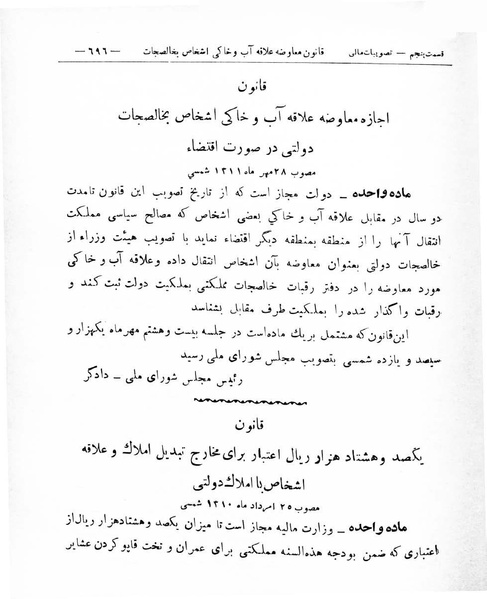 قسمت پنجم — تصویبات مالی قانون معاوضه علاقه آب و خاکی اشخاص بخالصجات — ۶۹۶ —
قانون
اجازه معاوضه علاقه آب و خاکی اشخاص بخالصجات
دولتی در صورت اقتضاء
مصوب ۲۸ مهر ماه ۱۳۱۱ شمسی
ماده واحده ـ دولت مجاز است که از تاریخ تصویب این قانون تامدت
دو سال در مقابل علاقه آب و خاکی بعضی اشخاص که مصالح سیاسی مملکت
انتقال آنها را از منطقه بمنطقه دیگر اقتضاء نماید با تصویب هیئت وزراء از
خالصجات دولتی بعنوان معاوضه بآن اشخاص انتقال داده وعلاقه آب و خاکی
مورد معاوضه را در دفتر رقبات خالصجات مملکتی بملکیت دولت ثبت کند و
رقبات واگذار شده را بملکیت طرف مقابل بشناسد
این قانون که مشتمل بریک ماده است در جلسه بیست وهشتم مهرماه یکهزار و
سیصد و یازده شمسی بتصویب مجلس شورای ملی رسید
رئیس مجلس شورای ملی ـ دادگر
قانون
یکصد وهشتاد هزار ریال اعتبار برای مخارج تبدیل املاک و علاقه
اشخاص با املاک دولتی
مصوب ۲۵ امرداد ماه ۱۳۱۰ شمسی
ماده واحده ـ وزارت مالیه مجاز است تا میزان یکصد وهشتادهزار ریال از
اعتباری که ضمن بودجه هذه السنه مملکتی برای عمران و تخت قاپو کردن عشایر